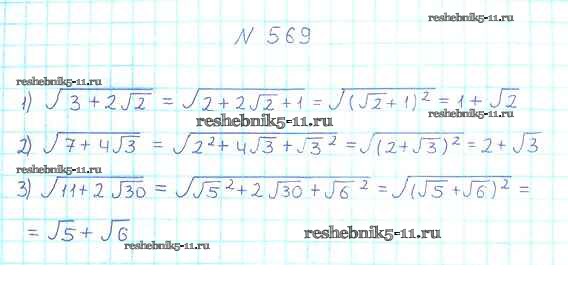 reshebnik5-11.ru
N 569
reshebnik5-11.ru
1) √(3 + 2√2) = √(2 + 2√2 + 1) = √((√2 + 1)²) = 1 + √2
reshebnik5-11.ru
reshebnik5-11.ru
2) √(7 + 4√3) = √(2² + 4√3 + √3²) = √((2 + √3)²) = 2 + √3
reshebnik5-11.ru
3) √(11 + 2√30) = √(√5² + 2√30 + √6²) = √((√5 + √6)²) =
= √5 + √6
reshebnik5-11.ru
reshebnik5-11.ru